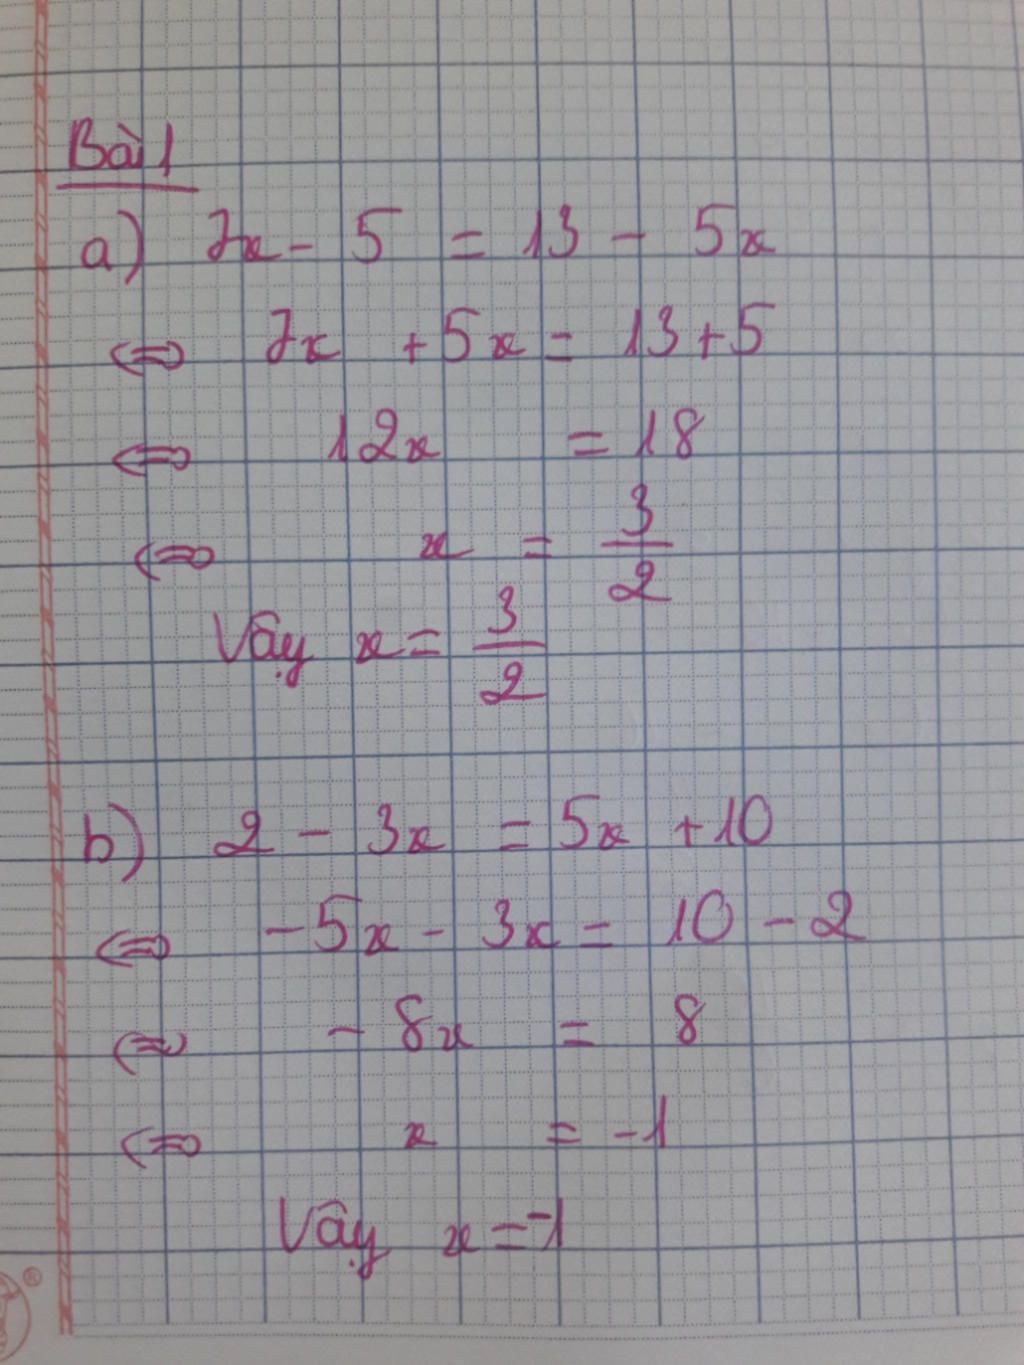 Bài 1
a) 7x - 5 = 13 - 5x
⇔ 7x + 5x = 13 + 5
⇔ 12x = 18
⇔ x = 3/2
Vậy x = 3/2
b) 2 - 3x = 5x + 10
⇔ -5x - 3x = 10 - 2
⇔ -8x = 8
⇔ x = -1
Vậy x = -1
®